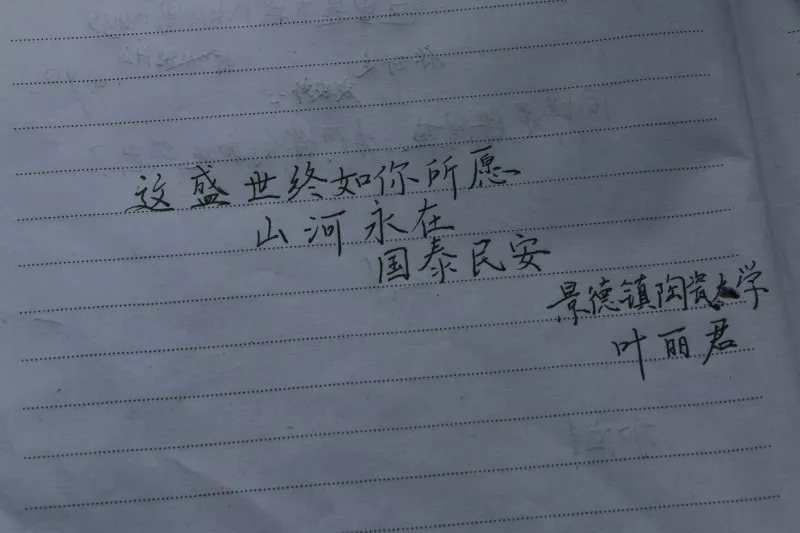 这盛世终如你所愿
山河永在
国泰民安
景德镇陶瓷大学
叶丽君